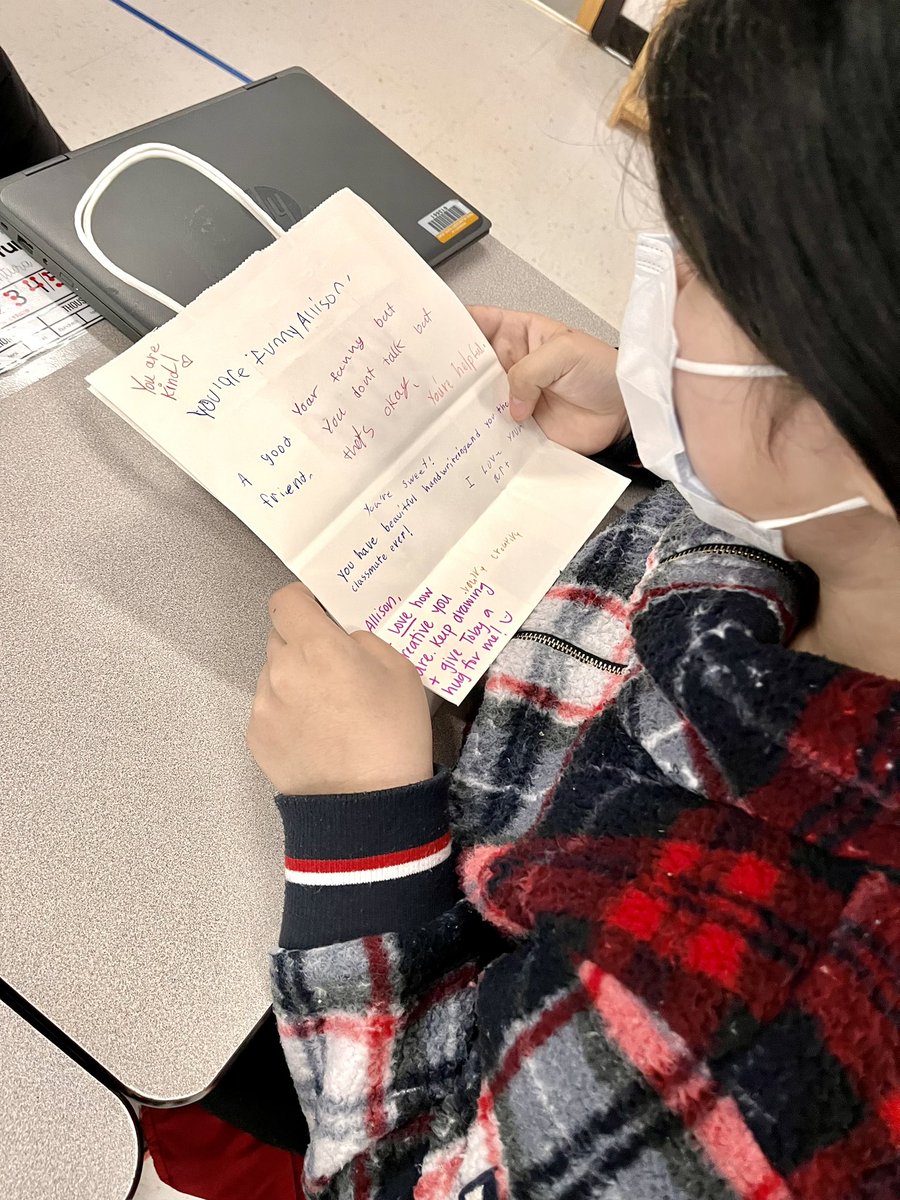 You are
kind!
You are funny Allison,
Your funny but
You dont talk but
that's okay,
You're helpful.
A good
friend.
You're sweet!
You have beautiful handwriteing and your the
classmate ever!
I Love your
art
Allison,
Love how
creative you
are. Keep drawing
+ give Toby a
hug for me!
hp